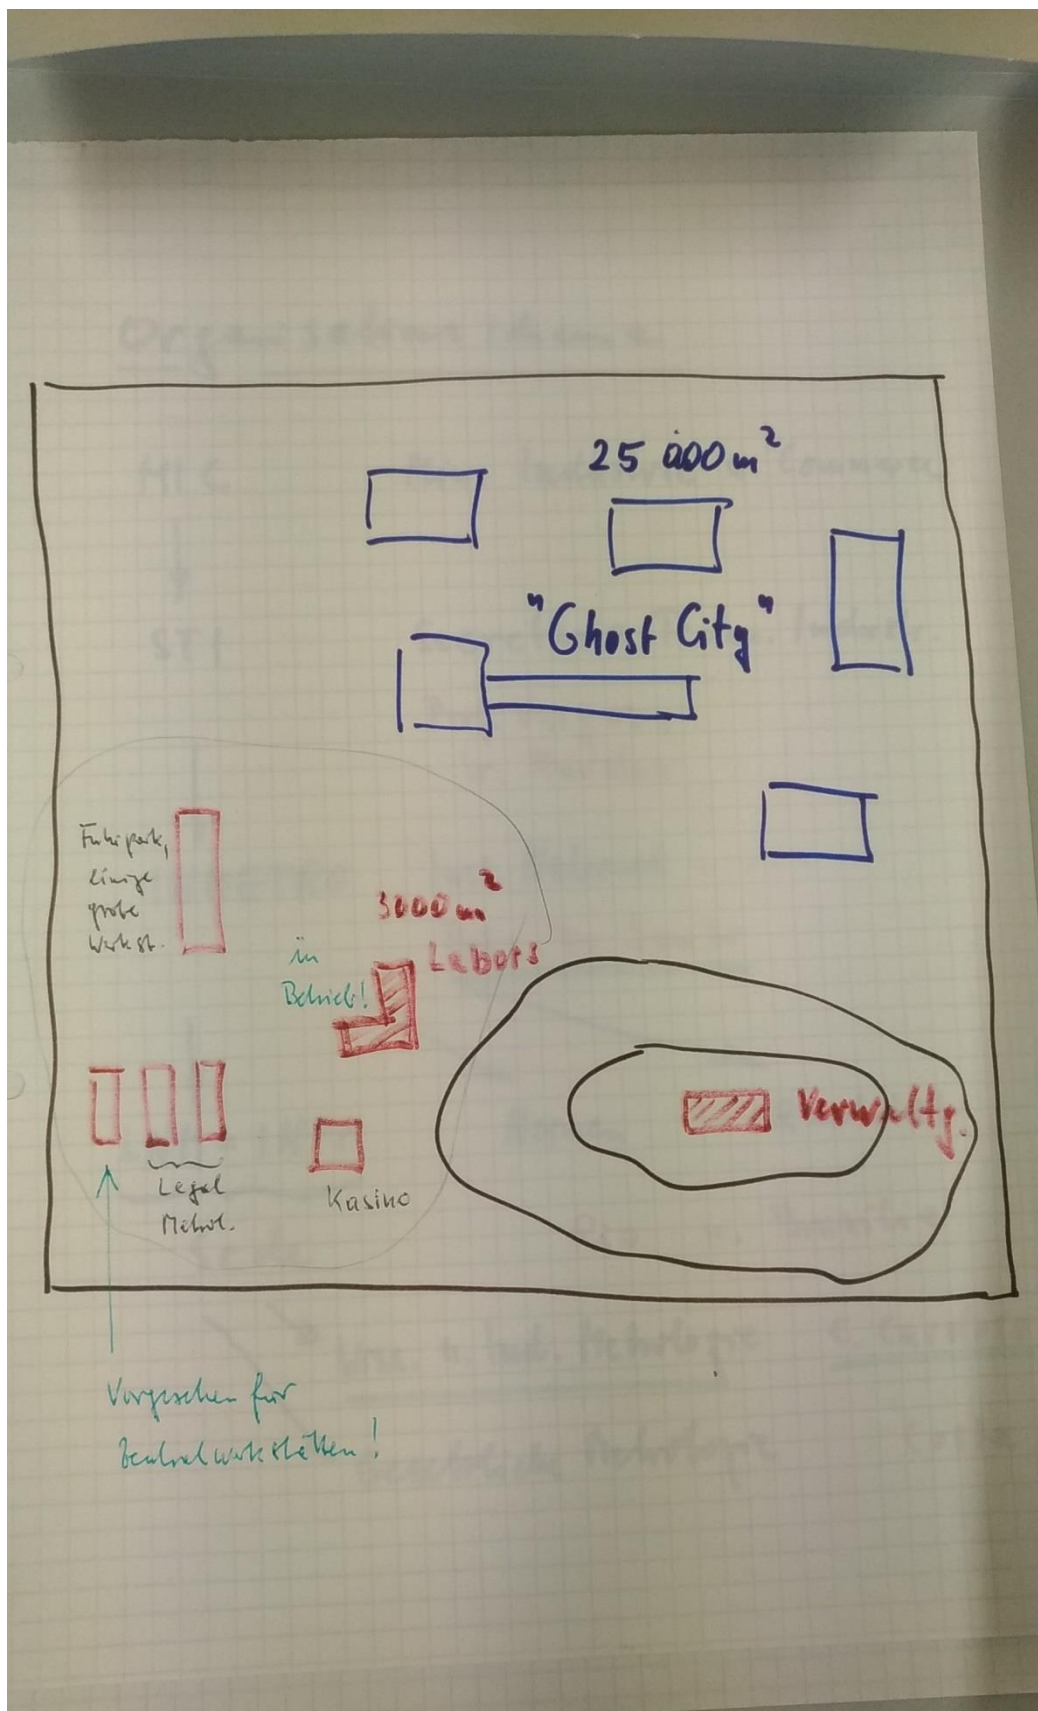 25 000 m²
"Ghost City"
Fuhrpark,
einige
grobe
Werkst.
3000 m²
Labors
in
Betrieb!
Verwaltg.
Legal
Metrol.
Kasino
Vorgesehen für
Zentralwerkstätten!